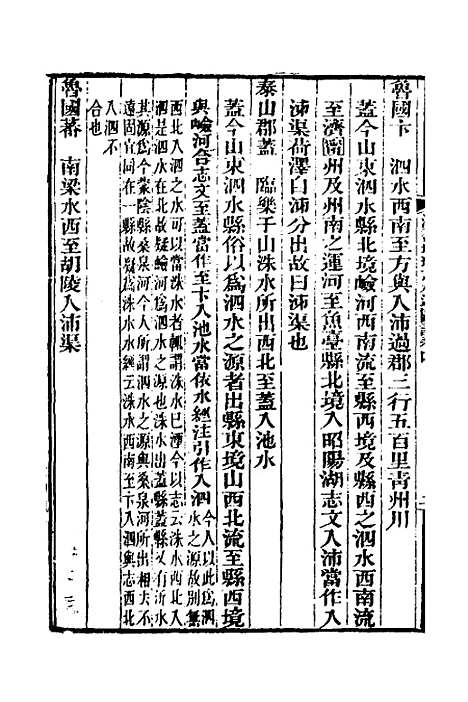 魯國卞　泗水西南至方與入沛過郡三行五百里青州川
蓋今山東泗水縣北境嶮河西南流至縣西境及縣西之泗水西南流
至濟寧州及州南之運河至魚臺縣北境入昭陽湖志文入沛當作入
沛渠荷澤曰沛分出故曰沛渠也
泰山郡蓋　臨樂于山洙水所出西北至蓋入池水
蓋今山東泗水縣俗以為泗水之源者出縣東境山西北流至縣西境
與嶮河合志文至蓋當作至卞入池水當依水經注引作入泗
今人以此為泗
水之源故別無
西北入泗之水可以當洙水者輒謂洙水已湮今以志云洙水西北入
泗是泗水在北故疑嶮河為今泗水之源也洙水出蓋縣蓋縣又有沂水
其源為今蒙陰縣桑泉河今所謂泗水之源與桑泉河所出相去不
遠固宜同在一縣故疑為洙水水經云洙水西南至卞入泗與志西北
入泗不
合也
魯國蕃　南梁水西至胡陵入沛渠